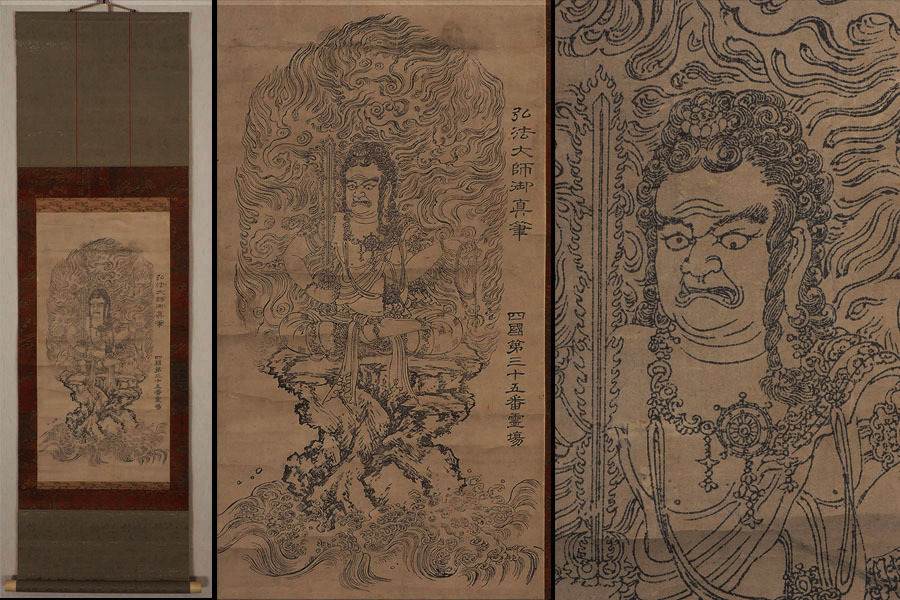 弘法大師御真筆
四國第三十五番霊場